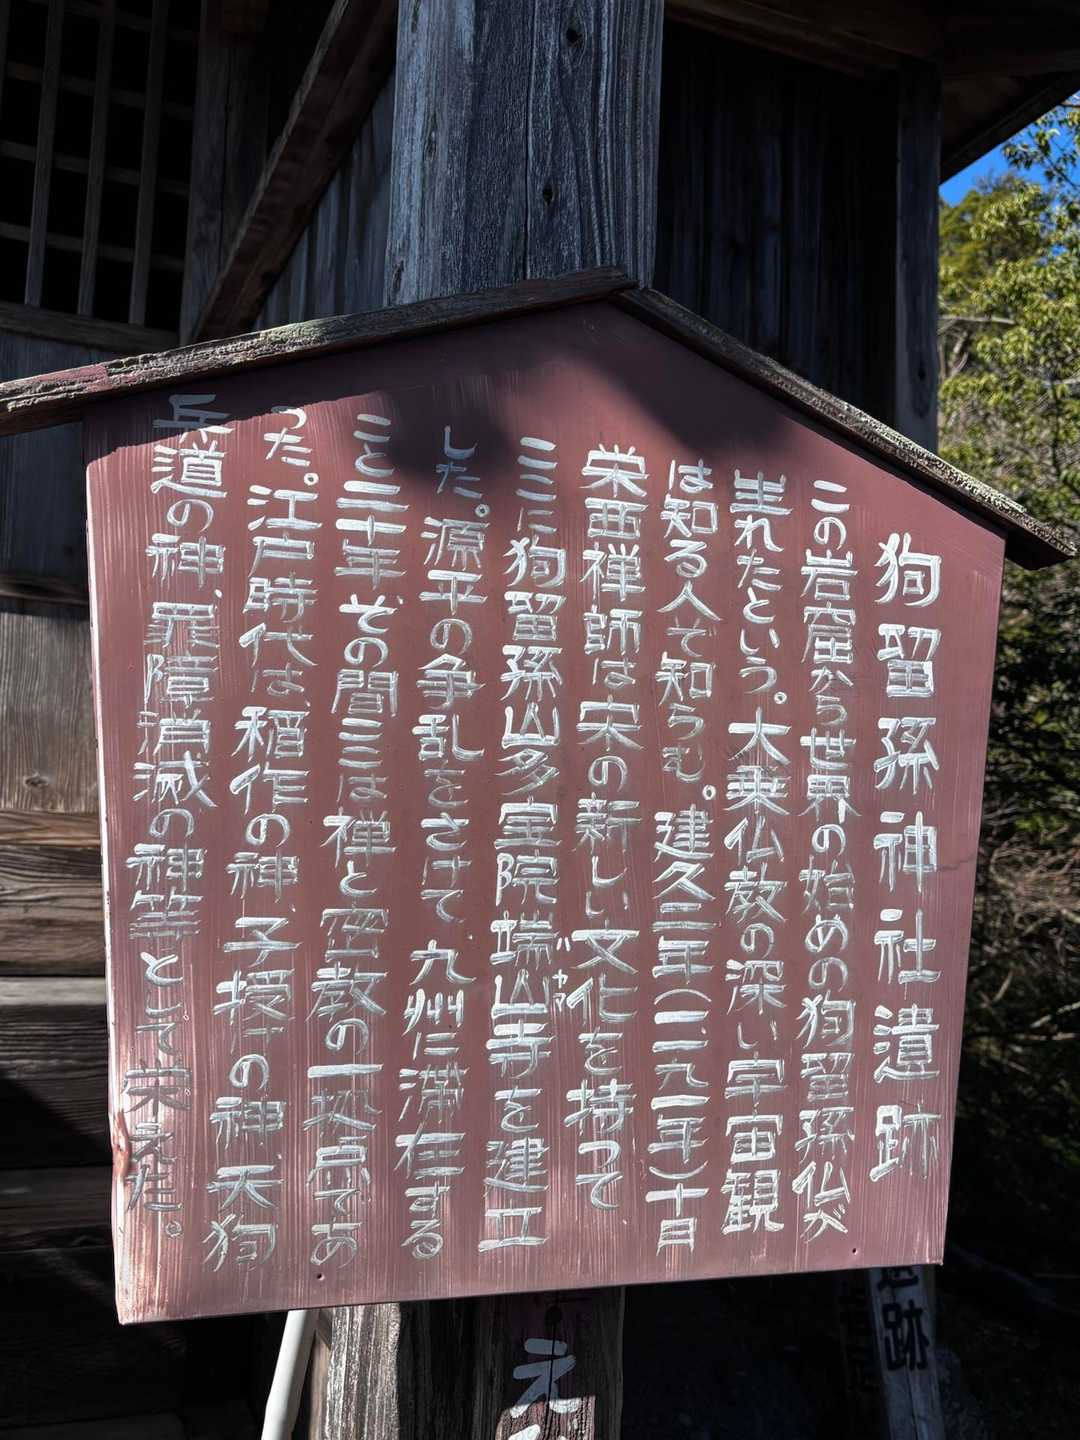 狗留孫神社遺跡
この岩窟から世界の始めの狗留孫仏が
生れたという。大乗仏教の深い宇宙観
は知る人ぞ知らむ。建久二年(一一九一年)十月
栄西禅師は宋の新しい文化を持って
ここに狗留孫山多宝院端山寺を建立
バヤマ
した。源平の争乱をさけて九州に滞在する
こと二十年その間ここは禅と密教の一拠点であ
った。江戸時代は、稲作の神、子授けの神、天狗
兵道の神、罪障消滅の神等として栄えた。
跡
え